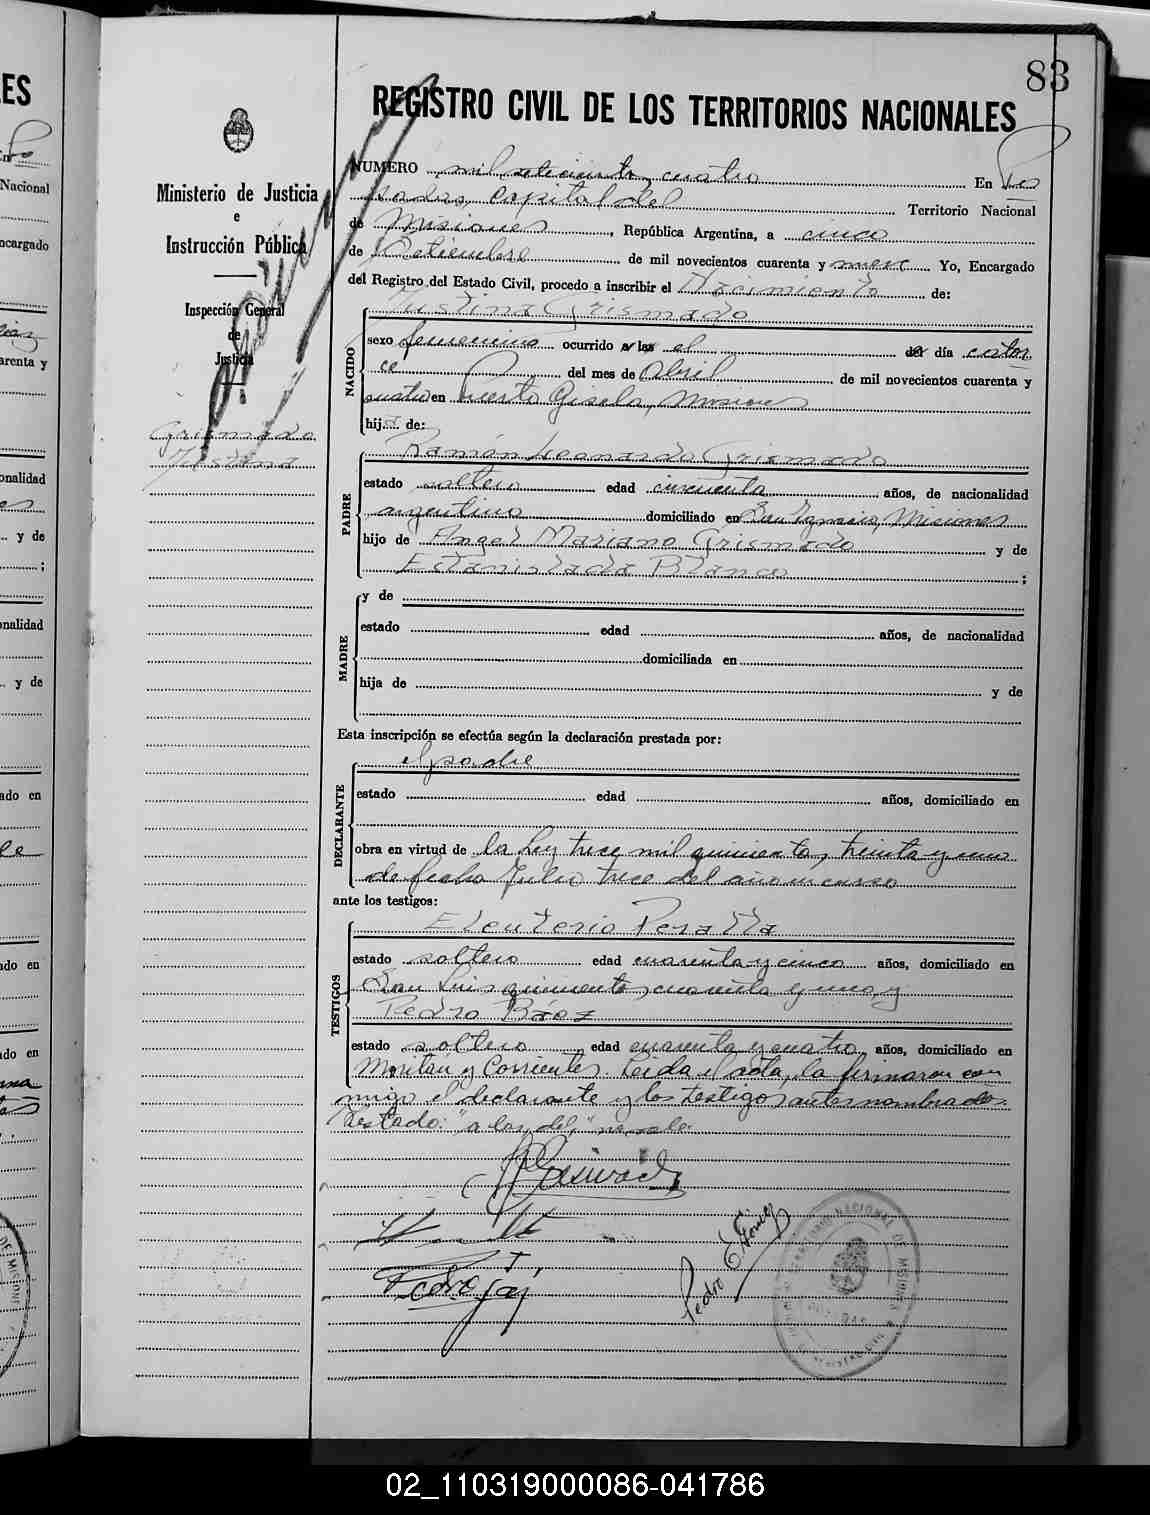 83
REGISTRO CIVIL DE LOS TERRITORIOS NACIONALES
Ministerio de Justicia
e
Instrucción Pública
Inspección General
de
Justicia
Grismado
Justina
NUMERO mil setecientos cuatro En Po
sadas, capital del Territorio Nacional
de Misiones, República Argentina, a cinco
de Setiembre de mil novecientos cuarenta y nueve Yo, Encargado
del Registro del Estado Civil, procedo a inscribir el Nacimiento de:
Justina Grismado
NACIDO
sexo femenino ocurrido a las el del día cator
ce del mes de Abril de mil novecientos cuarenta y
cuatro en Puerto Gisela, Misiones
hija de:
Ramón Leonardo Grismado
PADRE
estado soltero edad cincuenta años, de nacionalidad
argentino domiciliado en San Ignacio, Misiones
hijo de Angel Mariano Grismado y de
Estanislada Blanco ;
MADRE
y de
estado edad años, de nacionalidad
domiciliada en
hija de y de
Esta inscripción se efectúa según la declaración prestada por:
el padre
DECLARANTE
estado edad años, domiciliado en
obra en virtud de la Ley trece mil quinientos, treinta y uno
de fecha Julio trece del año en curso
ante los testigos:
Eleuterio Peralta
TESTIGOS
estado soltero edad cuarenta y cinco años, domiciliado en
San Luis quinientos cuarenta y uno, y
Pedro Báez
estado soltero edad cuarenta y cuatro años, domiciliado en
y Corrientes. Leida el acta, la firmaron con
migo el declarante y los testigos antes nombrados.
Testado: "a las, del," no vale.
Pedro
Pedro E. Gómez
TERRITORIO NACIONAL DE MISIONES
02_110319000086-041786